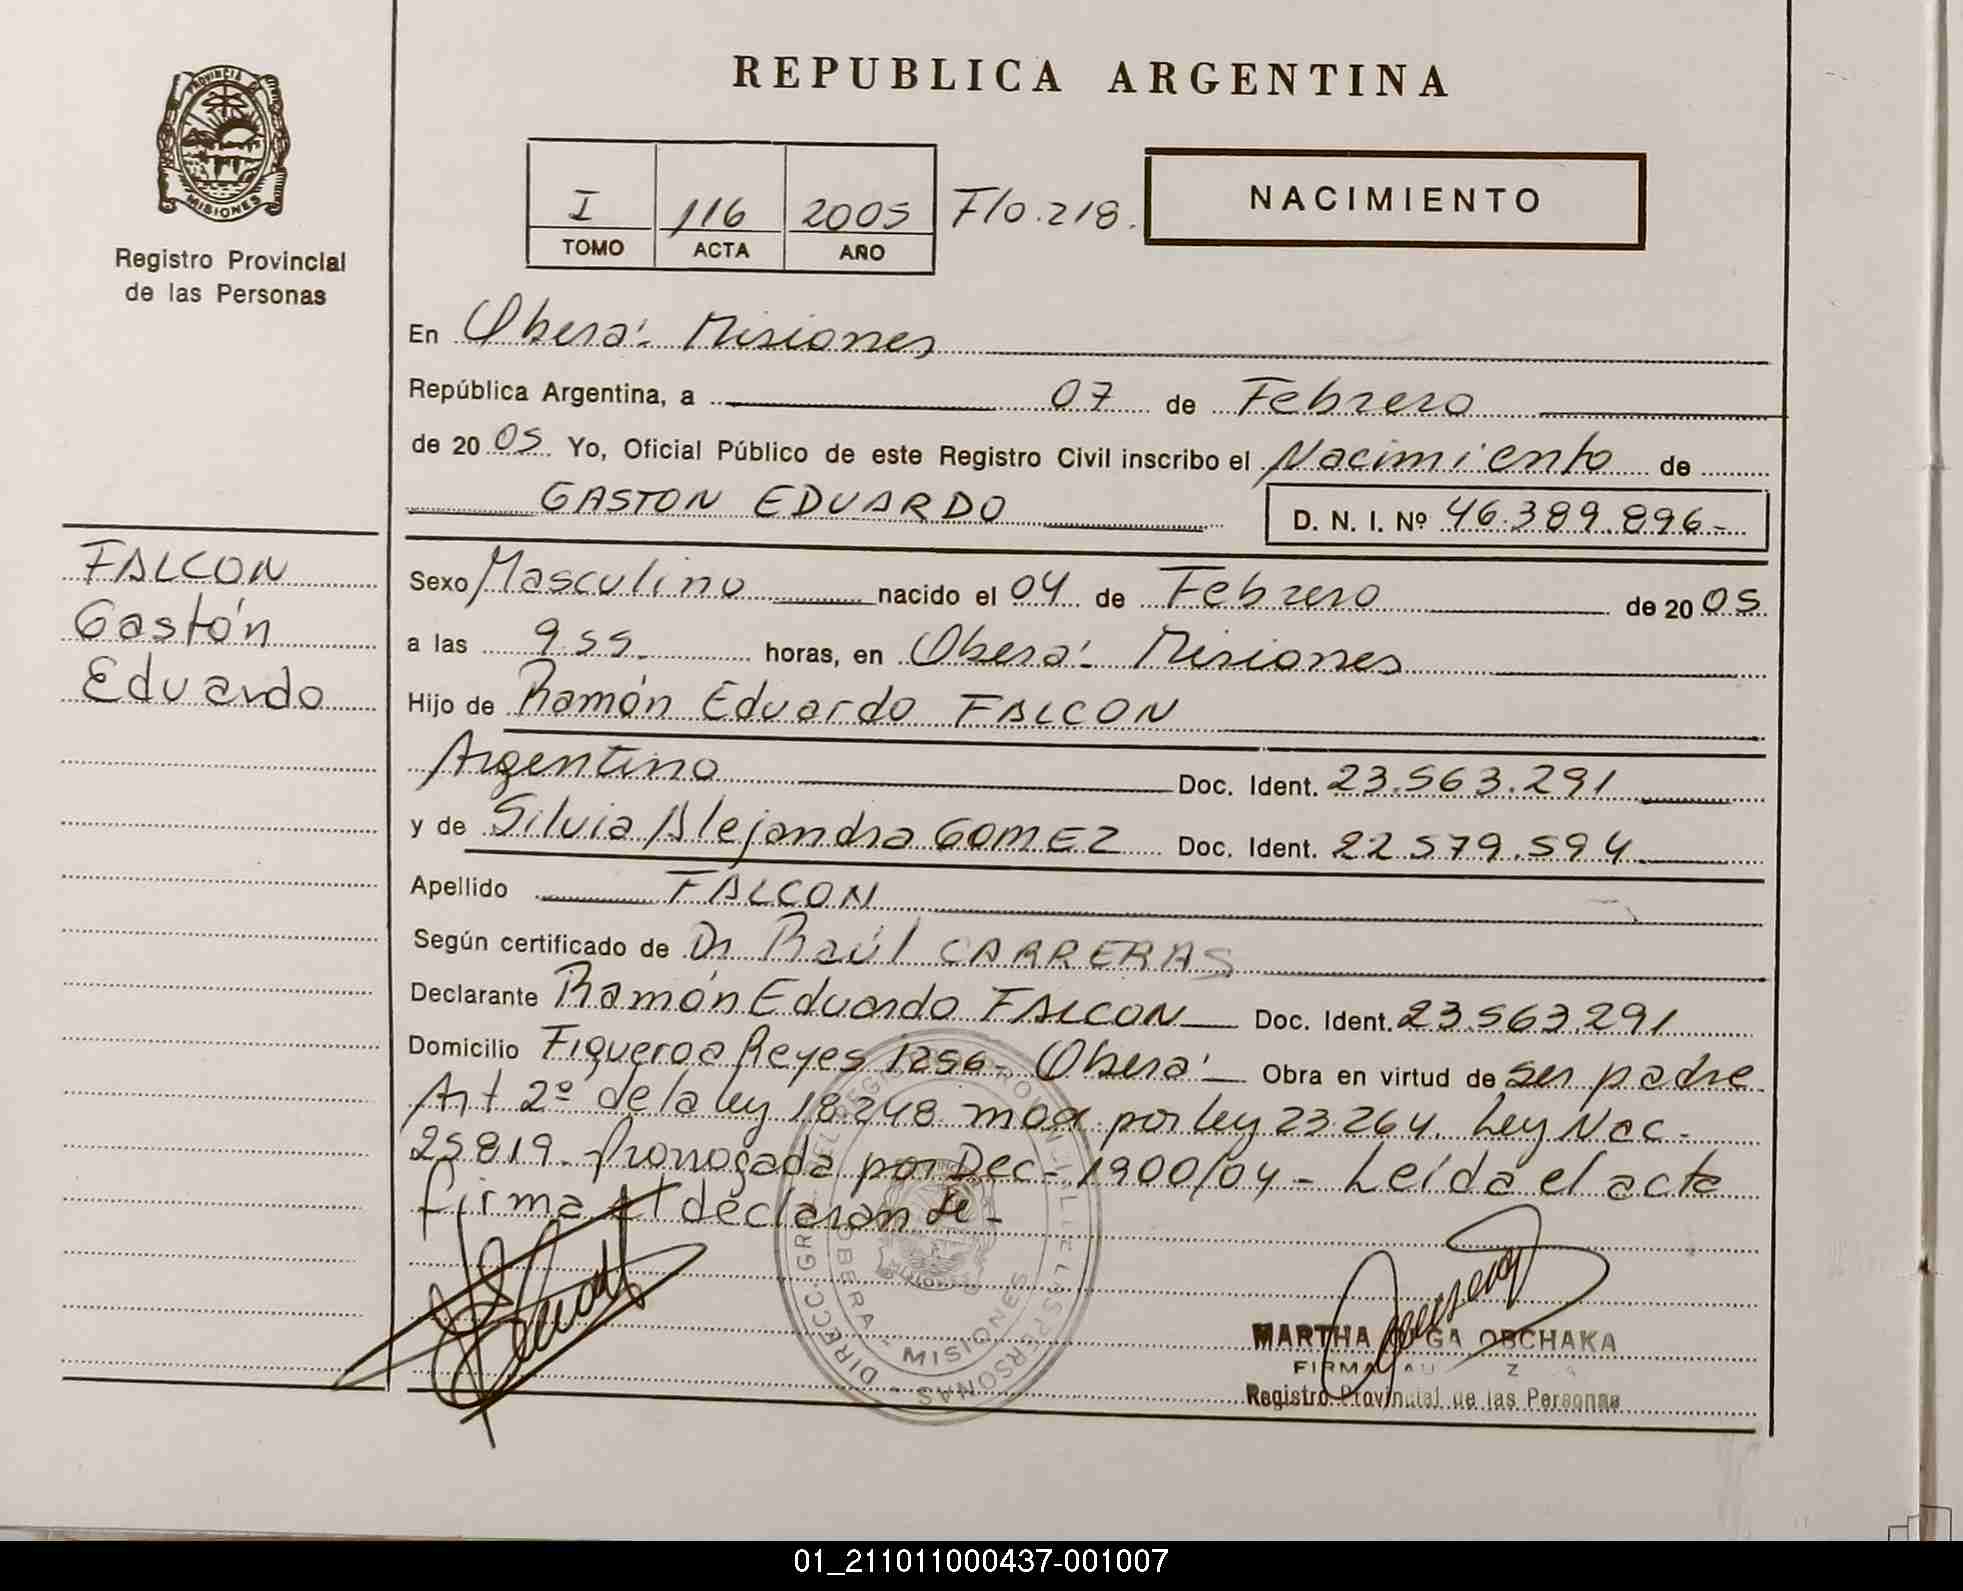 REPUBLICA ARGENTINA
PROVINCIA DE
MISIONES
Registro Provincial
de las Personas
I 116 2005 Flo. 218.
TOMO ACTA AÑO
NACIMIENTO
En Oberá - Misiones
República Argentina, a 07 de Febrero
de 20 05 Yo, Oficial Público de este Registro Civil inscribo el Nacimiento de
GASTON EDUARDO D. N. I. Nº 46.389.896.-
FALCON
Gastón
Eduardo
Sexo Masculino nacido el 04 de Febrero de 20 05
a las 9.55. horas, en Oberá - Misiones
Hijo de Ramón Eduardo FALCON
Argentino Doc. Ident. 23.563.291
y de Silvia Alejandra GOMEZ Doc. Ident. 22.579.594.
Apellido FALCON
Según certificado de Dr Raúl CARRERAS
Declarante Ramón Eduardo FALCON Doc. Ident. 23.563.291
Domicilio Figueroa Reyes 1256 - Oberá - Obra en virtud de ser padre
Art 2º de la ley 18.248 mod. por ley 23.264. Ley Nac.
25819. Prorrogada por Dec- 1900/04 - Leída el acta
firma el declarante -
OBERA - MISIONES
MARTHA OLGA OBCHAKA
Registro Provincial de las Personas
01_211011000437-001007